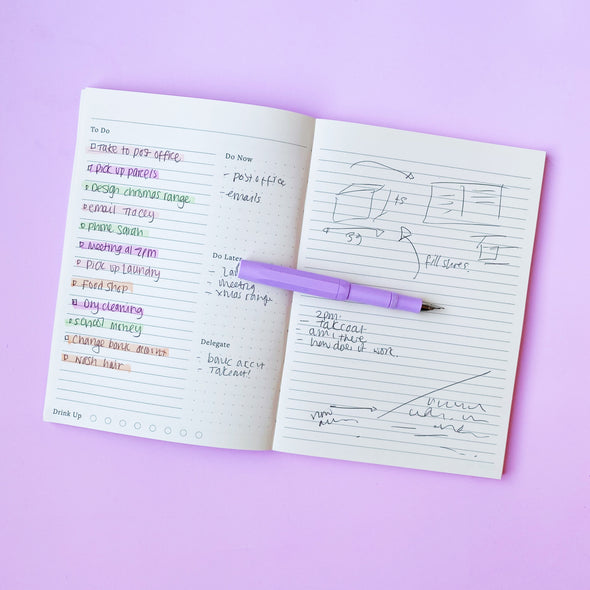 To Do
Take to post office
Pick up parcels
Design christmas range
email Tracey
phone Sarah
Meeting at 2pm
Pick up laundry
Food Shop
Dry cleaning
school money
Change bank account
Wash hair
Drink Up
Do Now
- post office
- emails
Do Later
- meeting
- xmas range
Delegate
- bank accnt
- Takeout!
45
39
fill
2pm.
- how does it work.